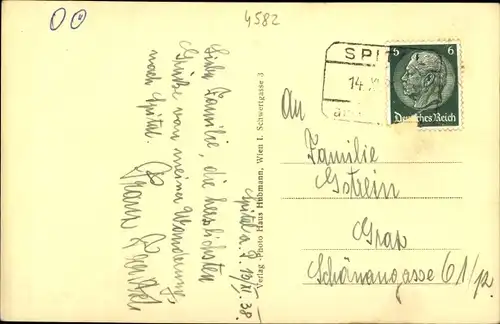 4582
Liebe Familie, die herzlichsten
Grüße von meiner Wanderung
nach Spital.
Franz
Spital a. P. 13. XI. 38.
Verlag-Photo Hans Hubmann, Wien I. Schwertgasse 3
SPIT
14. XI
5 6
Deutsches Reich
An
Familie
Gstrein
Graz
Schönaugasse 61/p.